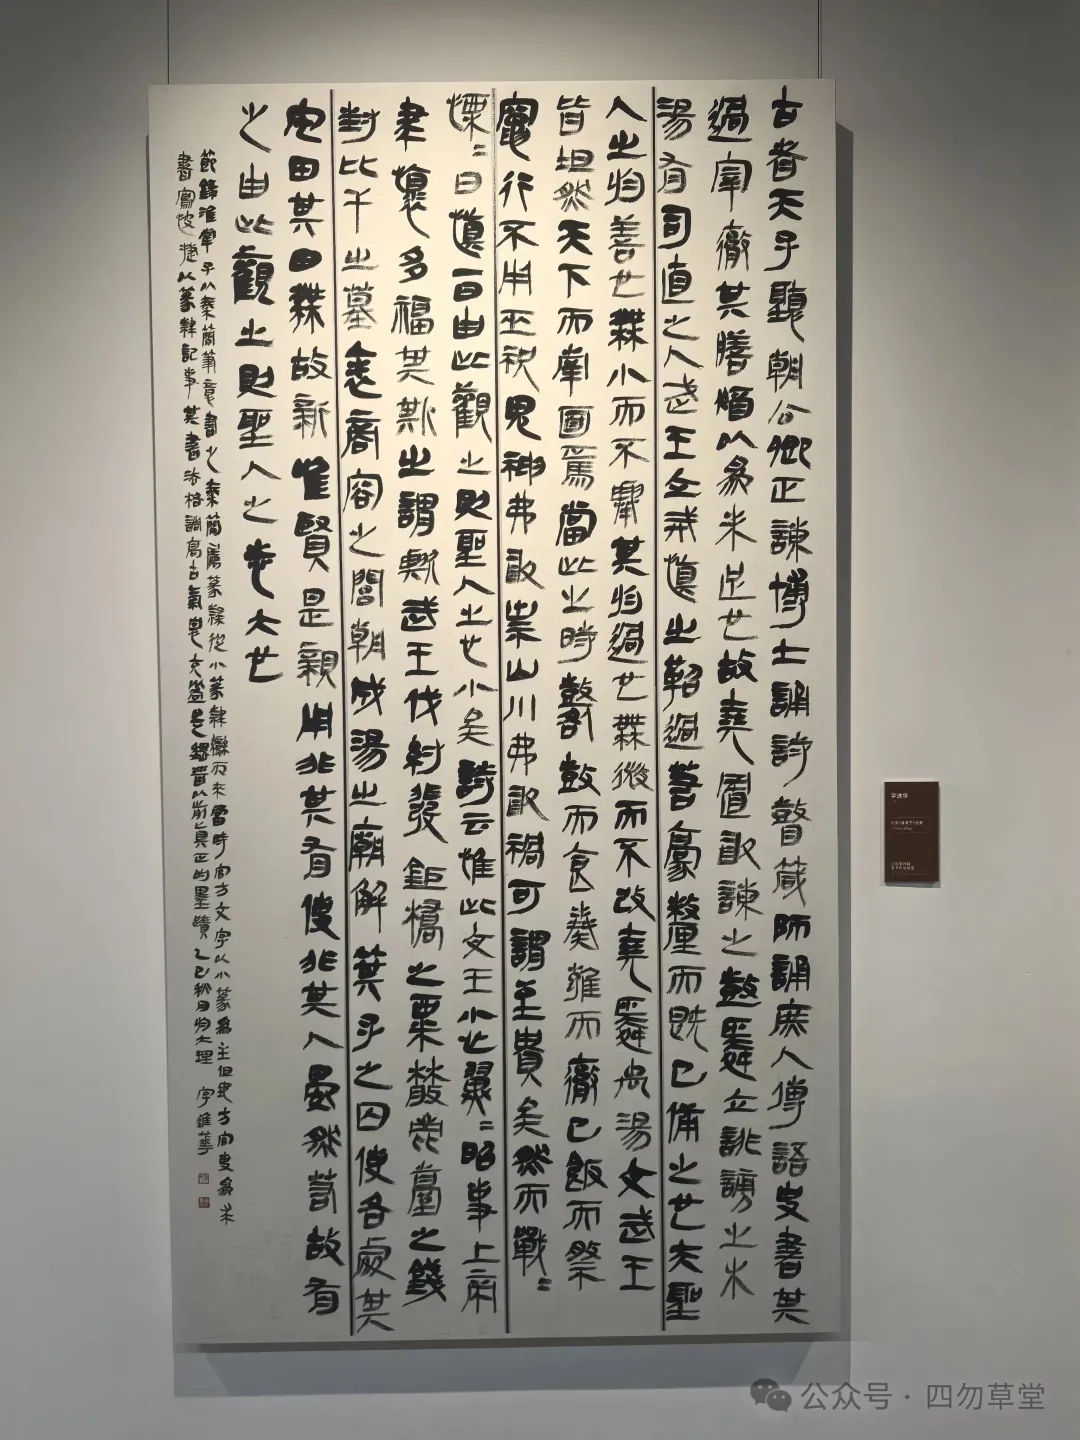 古者天子聽朝公卿正諫博士誦詩瞽箴師誦庶人傳語史書其
過宰徹其膳猶以為未足也故堯置敢諫之鼓舜立誹謗之木
湯有司直之人武王立戒慎之鞀過若豪釐而既已備之也夫聖
人之於善也無小而不舉其於過也無微而不改堯舜禹湯文武王
皆坦然天下而南面焉當此之時鼛鼓而食奏雍而徹已飯而祭
竈行不用巫祝鬼神弗敢祟山川弗敢禍可謂至貴矣然而戰=
慄=日慎一日由此觀之則聖人之心小矣詩云惟此文王小心翼=昭事上帝
聿懷多福其斯之謂歟武王伐紂發鉅橋之粟散鹿臺之錢
封比干之墓表商容之閭朝成湯之廟解箕子之囚使各處其
宅田其田無故新惟賢是親用非其有使非其人晏然若故有
之由此觀之則聖人之志大也
節錄淮南子以秦簡筆意書之秦簡屬篆隸從小篆隸變而來當時官方文字以小篆為主但地方官吏為求
書寫便捷以篆隸記事其書法格調高古氣息文㷀是魏晉以前真正的墨蹟乙巳秋月於大理 字進華
字進華
公众号 · 四勿草堂